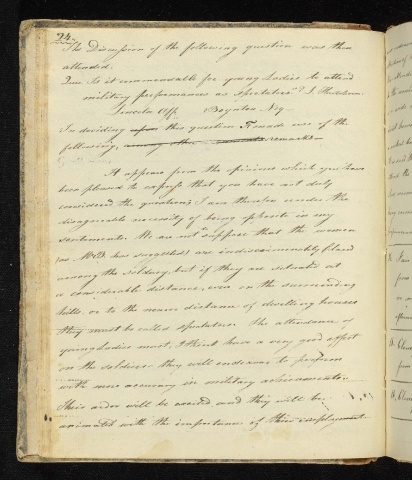 24.
The Discussion of the following question was then
attended.
Ques. Is it commendable for young Ladies to attend
military performances as spectators? J.
Lincoln Aff. Boynton Neg.
In deciding upon this question I made use of the
following, among other remarks
It appears from the opinions which you have
been pleased to express that you have not duly
considered the question; I am therefore under the
disagreeable necessity of being opposite in my
sentiments. We are not to suppose that the women
(as has suggested) are indiscriminately placed
among the soldiery, but if they are situated at
a considerable distance, even on the surrounding
hills or to the nearer distance of dwelling houses
they must be called spectators. The attendance of
young Ladies must, I think have a very good effect
on the soldiers they will endeavor to perform
with more accuracy in military achievements.
Their ardor will be excited and they will be
animated with the importance of their employment